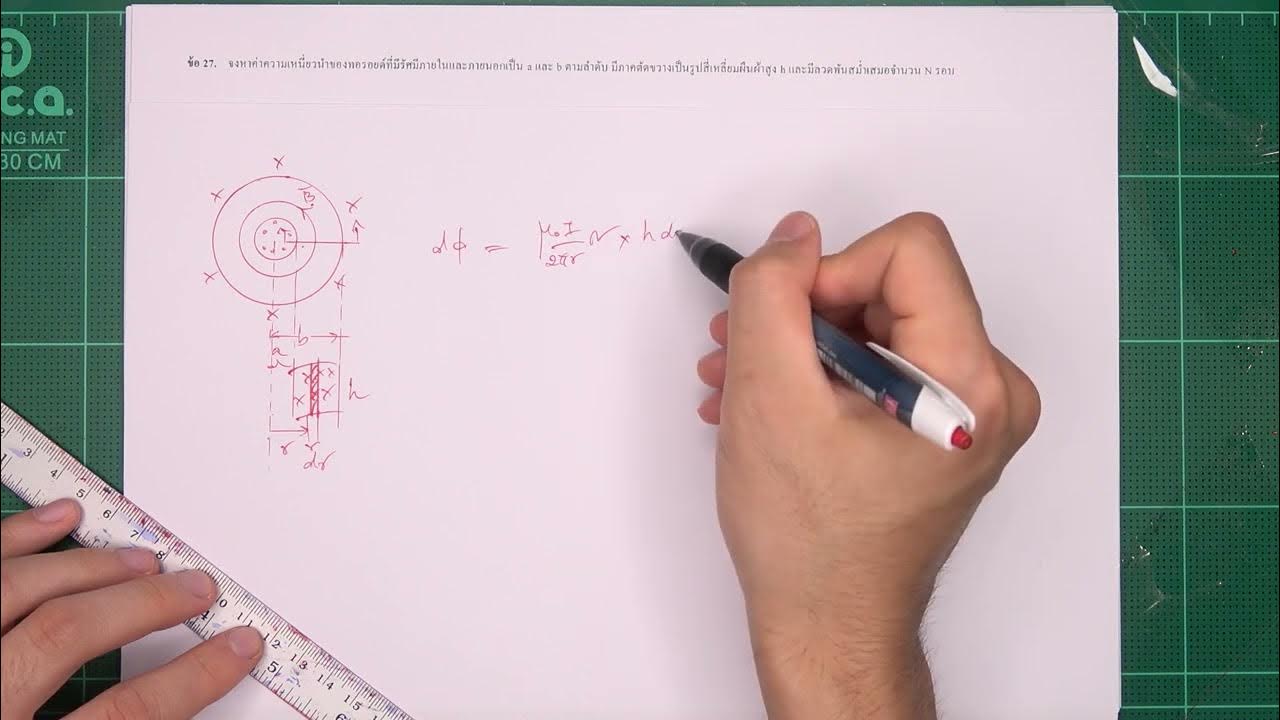 ข้อ 27. จงหาค่าความเหนี่ยวนำของทอรอยด์ที่มีรัศมีภายในและภายนอกเป็น a และ b ตามลำดับ มีภาคตัดขวางเป็นรูปสี่เหลี่ยมผืนผ้าสูง h และมีลวดพันสม่ำเสมอจำนวน N รอบ
c.a.
NG MAT
30 CM
dφ = μ₀I/2πr N × h d
B
r
b
a
h
r
dr
3 4 5 6 7 8
0 1 12 13 14 15
5